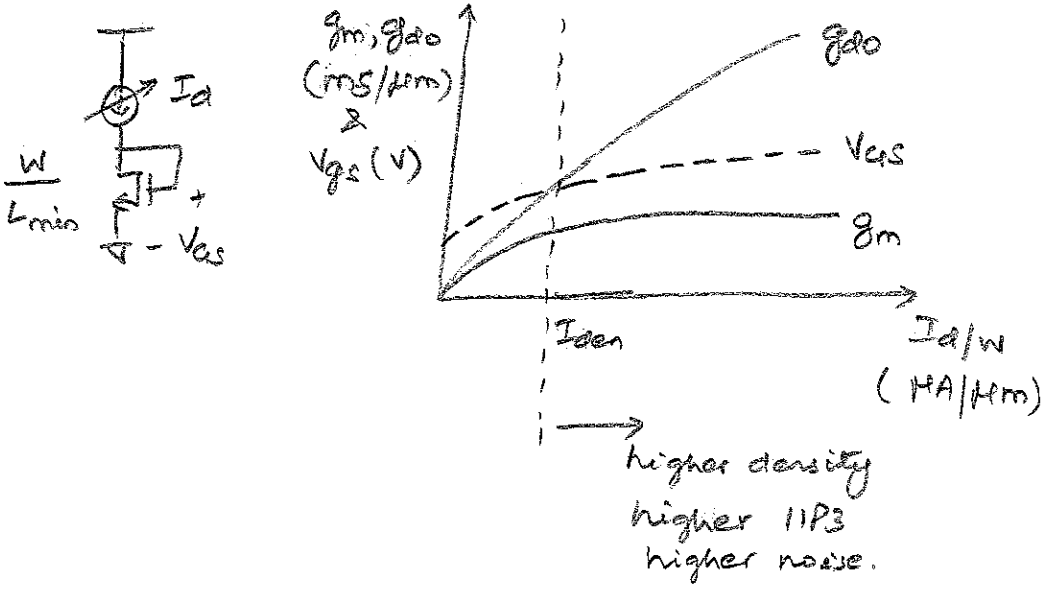 I_d
W
L_min
+
- V_GS
g_m, g_d0
(mS/μm)
&
V_gs (V)
g_d0
V_GS
g_m
I_den
I_d/W
(μA/μm)
higher density
higher IIP3
higher noise.